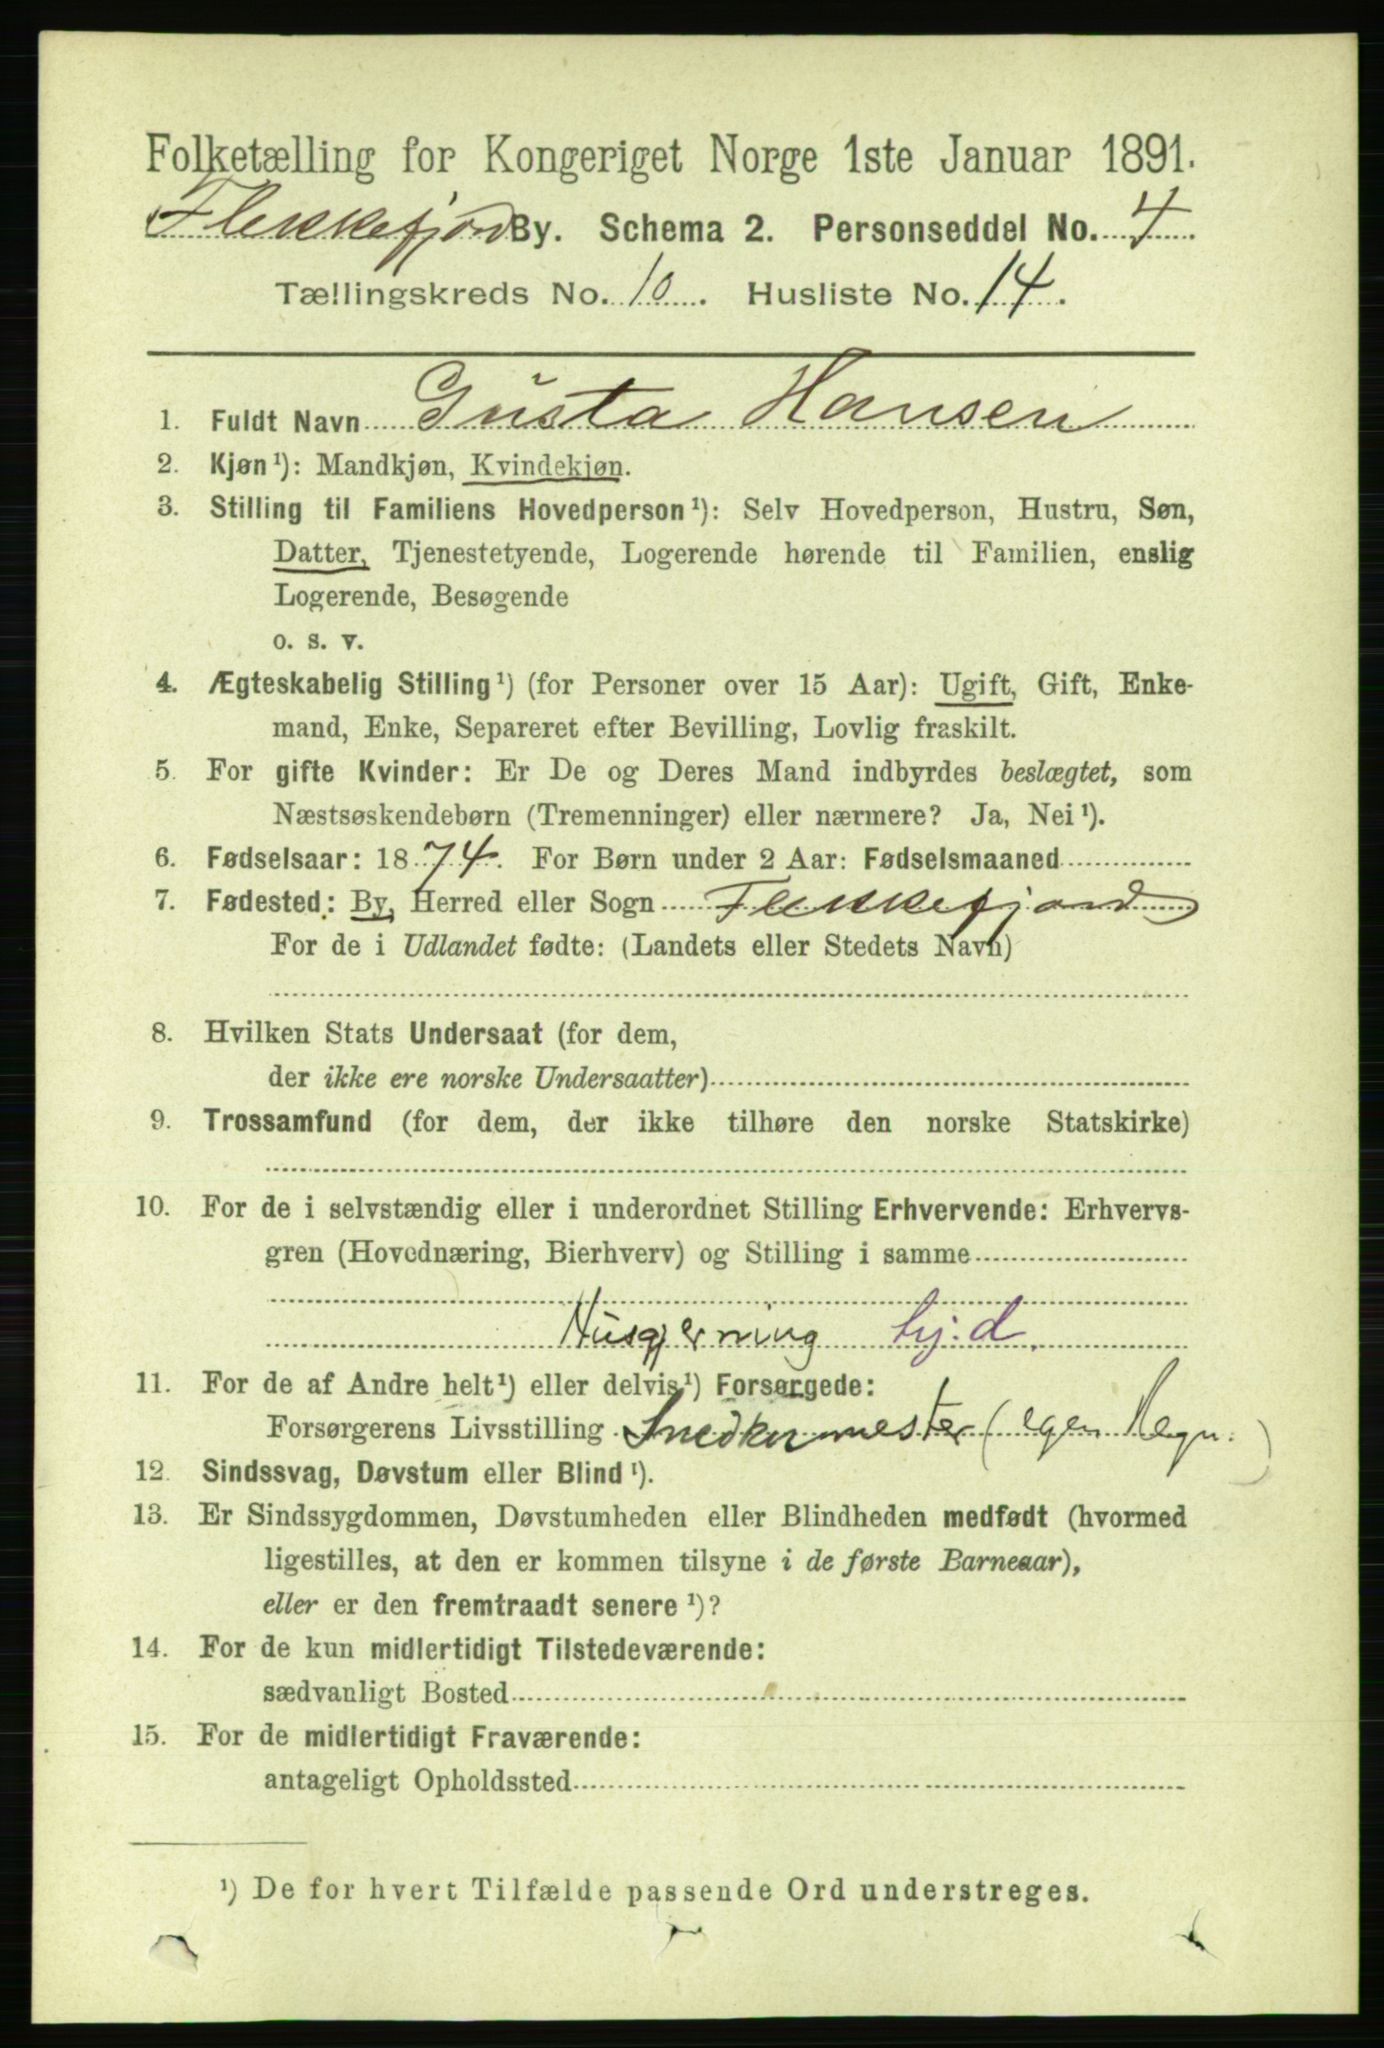 Folketælling for Kongeriget Norge 1ste Januar 1891.
Flekkefjord By. Schema 2. Personseddel No. 4
Tællingskreds No. 10. Husliste No. 14.
1. Fuldt Navn Gusta Hansen
2. Kjøn¹): Mandkjøn, Kvindekjøn.
3. Stilling til Familiens Hovedperson¹): Selv Hovedperson, Hustru, Søn,
Datter, Tjenestetyende, Logerende hørende til Familien, enslig
Logerende, Besøgende
o. s. v.
4. Ægteskabelig Stilling¹) (for Personer over 15 Aar): Ugift, Gift, Enke-
mand, Enke, Separeret efter Bevilling, Lovlig fraskilt.
5. For gifte Kvinder: Er De og Deres Mand indbyrdes beslægtet, som
Næstsøskendebørn (Tremenninger) eller nærmere? Ja, Nei¹).
6. Fødselsaar: 1874. For Børn under 2 Aar: Fødselsmaaned
7. Fødested: By, Herred eller Sogn Flekkefjord
For de i Udlandet fødte: (Landets eller Stedets Navn)
8. Hvilken Stats Undersaat (for dem,
der ikke ere norske Undersaatter)
9. Trossamfund (for dem, der ikke tilhøre den norske Statskirke)
10. For de i selvstændig eller i underordnet Stilling Erhvervende: Erhvervs-
gren (Hovednæring, Bierhverv) og Stilling i samme
Husgjerning hj. d.
11. For de af Andre helt¹) eller delvis¹) Forsørgede:
Forsørgerens Livsstilling Snedkermester (egen Regn.)
12. Sindssvag, Døvstum eller Blind¹).
13. Er Sindssygdommen, Døvstumheden eller Blindheden medfødt (hvormed
ligestilles, at den er kommen tilsyne i de første Barneaar),
eller er den fremtraadt senere¹)?
14. For de kun midlertidigt Tilstedeværende:
sædvanligt Bosted
15. For de midlertidigt Fraværende:
antageligt Opholdssted
¹) De for hvert Tilfælde passende Ord understreges.